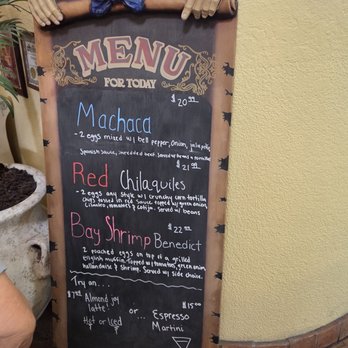 MENU
FOR TODAY
$20.99
Machaca
- 2 eggs mixed w/ bell pepper, onion, jalapeño,
Spanish sauce, shredded beef. Served w/ beans & tortillas
$21.99
Red Chilaquiles
- 2 eggs any style w/ crunchy corn tortilla
chips tossed in red sauce topped w/ green onion,
cilantro, tomatoes & cotija. Served w/ beans
$22.99
Bay Shrimp Benedict
2 poached eggs on top of a grilled
English muffin topped w/ tomatoes, green onion,
hollandaise & shrimp. Served w/ side choice.
Try an...
$7.95
Almond joy
latte!
Hot or Iced
or...
$15.00
Espresso
Martini